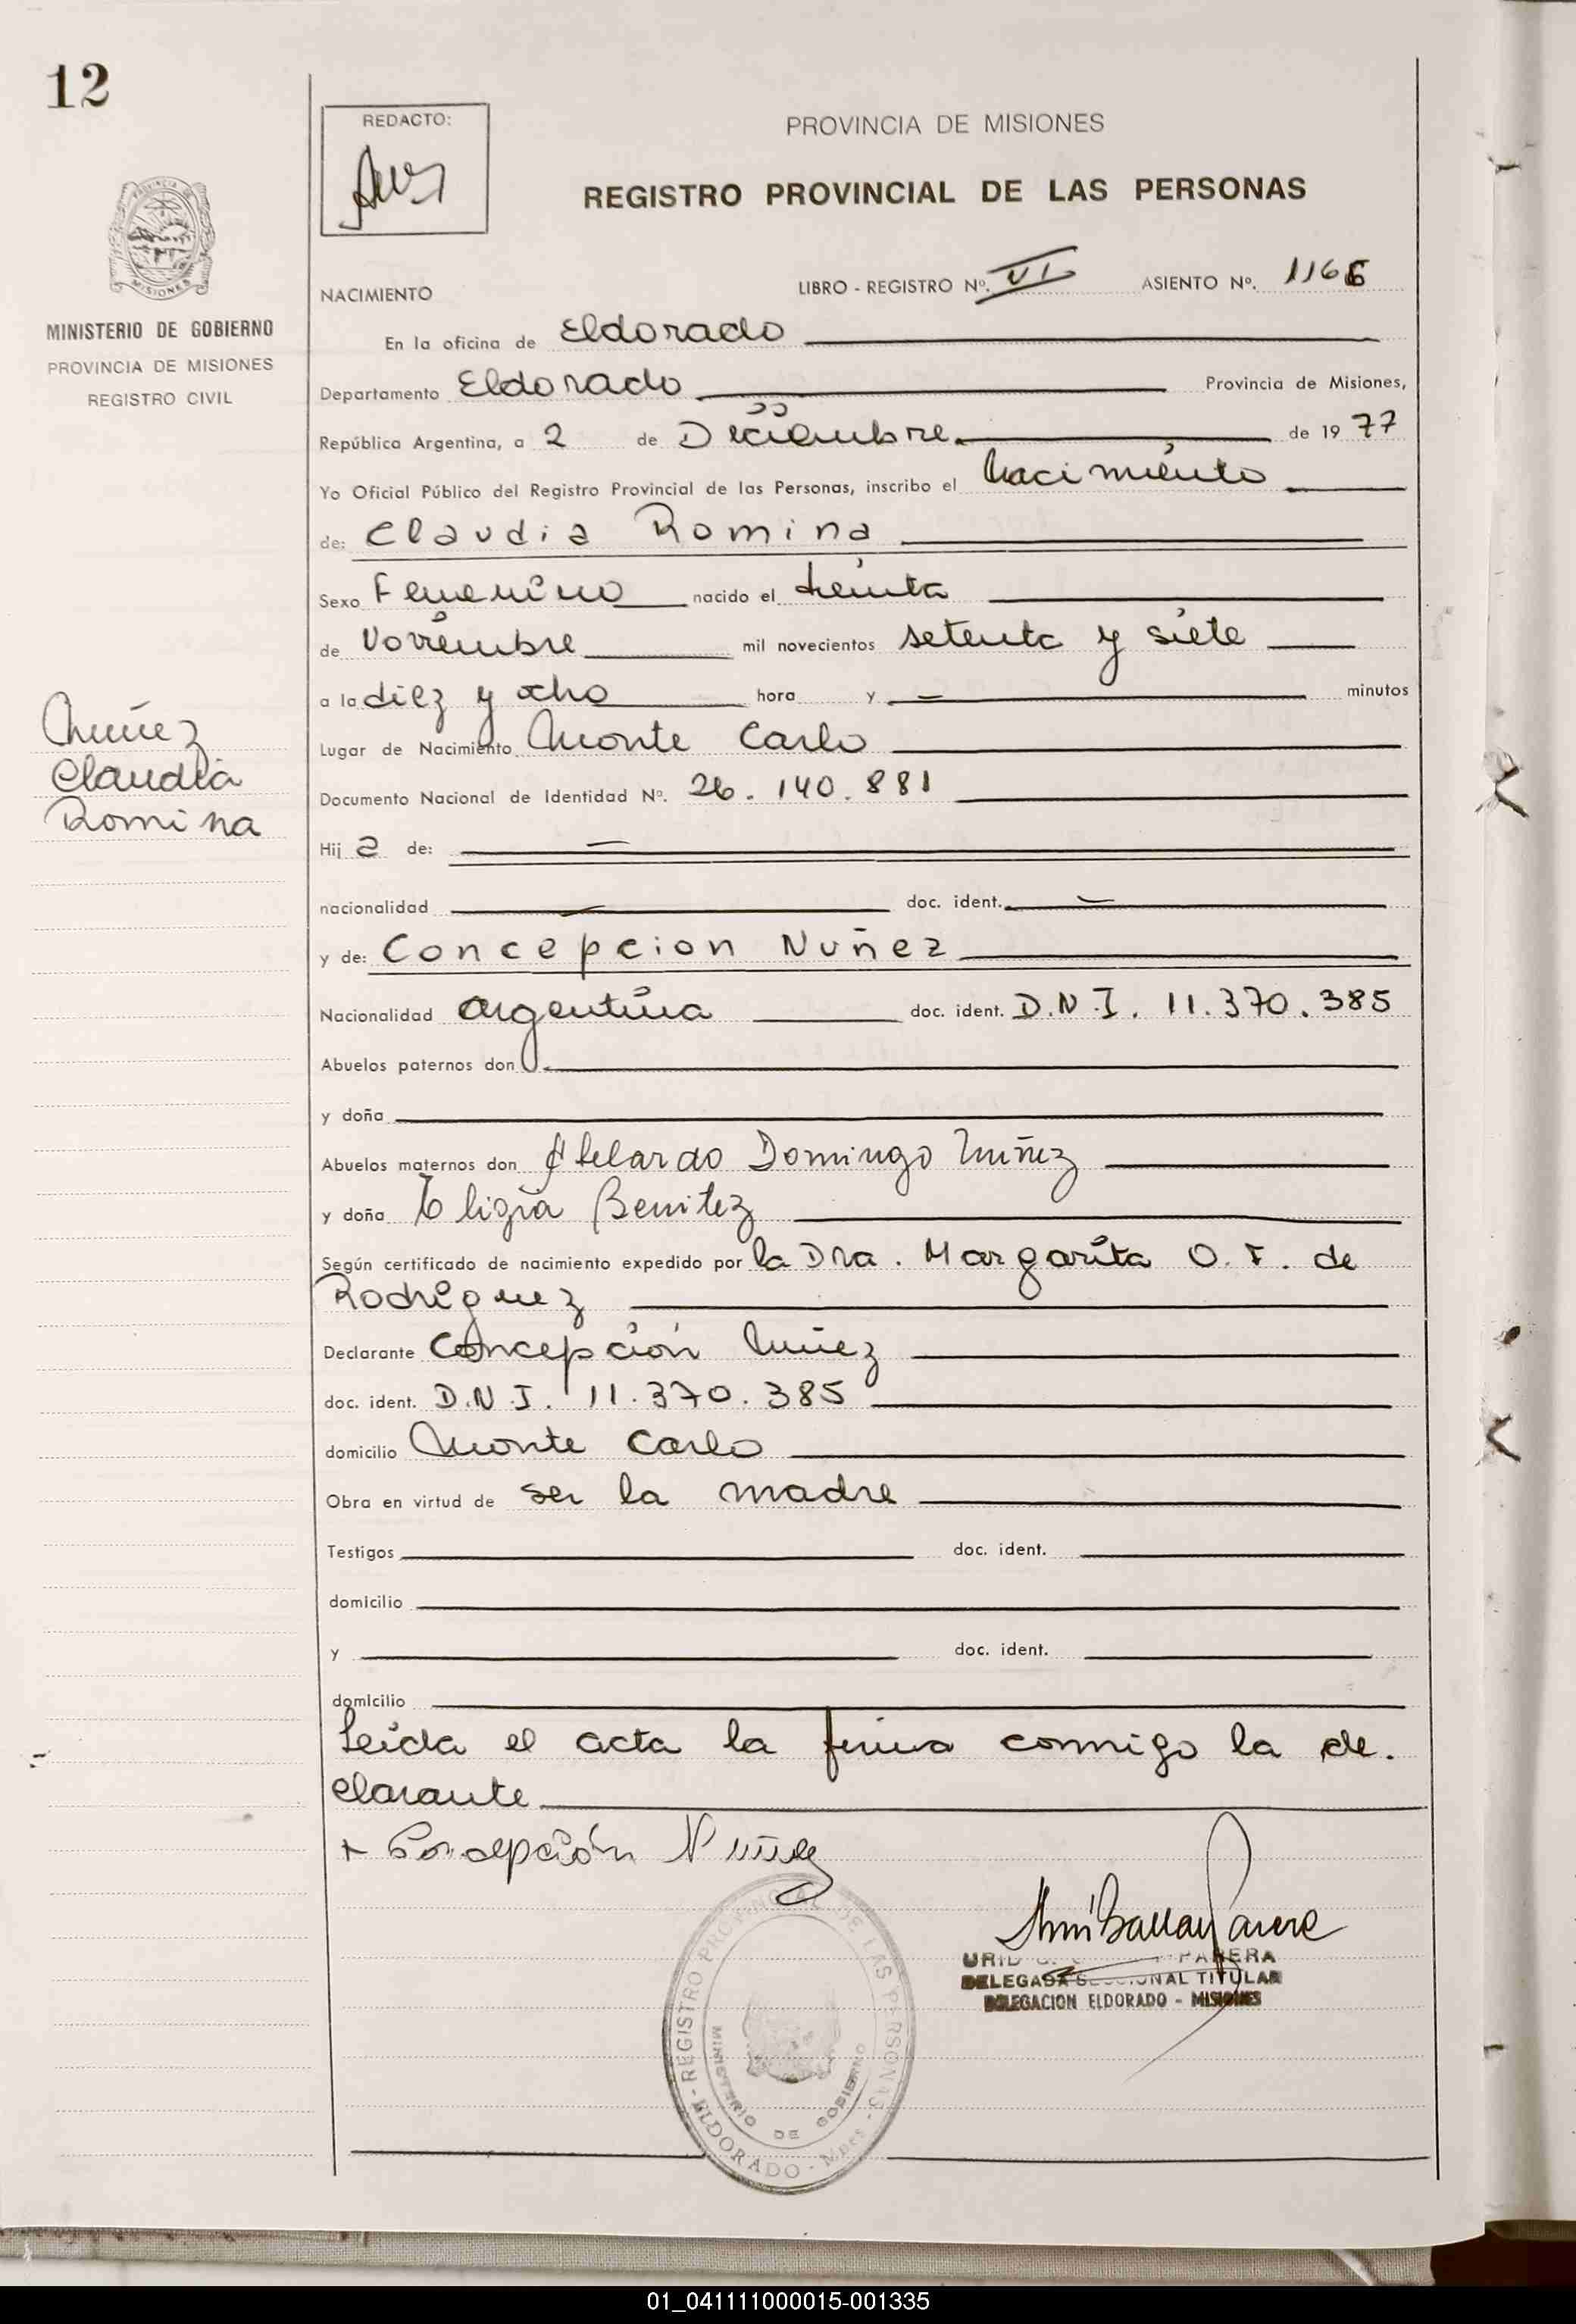 12
PROVINCIA DE MISIONES
MINISTERIO DE GOBIERNO
PROVINCIA DE MISIONES
REGISTRO CIVIL
Nuñez
Claudia
Romina
REDACTO:
PROVINCIA DE MISIONES
REGISTRO PROVINCIAL DE LAS PERSONAS
NACIMIENTO LIBRO - REGISTRO Nº. VI ASIENTO Nº. 1166
En la oficina de Eldorado
Departamento Eldorado Provincia de Misiones,
República Argentina, a 2 de Diciembre de 1977
Yo Oficial Público del Registro Provincial de las Personas, inscribo el Nacimiento
de: Claudia Romina
Sexo Femenino nacido el treinta
de Noviembre mil novecientos setenta y siete
a la diez y ocho hora y — minutos
Lugar de Nacimiento Monte Carlo
Documento Nacional de Identidad Nº. 26.140.881
Hija de: —
nacionalidad — doc. ident. —
y de: Concepcion Nuñez
Nacionalidad argentina doc. ident. D.N.I. 11.370.385
Abuelos paternos don
y doña
Abuelos maternos don Abelardo Domingo Nuñez
y doña Eligia Benitez
Según certificado de nacimiento expedido por la Dra. Margarita O. F. de
Rodriguez
Declarante Concepción Nuñez
doc. ident. D.N.I. 11.370.385
domicilio Monte Carlo
Obra en virtud de ser la madre
Testigos doc. ident.
domicilio
y doc. ident.
domicilio
Leida el acta la firma conmigo la de-
clarante
+ Concepción Nuñez
PARERA
DELEGADA SECCIONAL TITULAR
DELEGACION ELDORADO - MISIONES
REGISTRO PROVINCIAL DE LAS PERSONAS - ELDORADO - Mnes -
MINISTERIO DE GOBIERNO
01_041111000015-001335